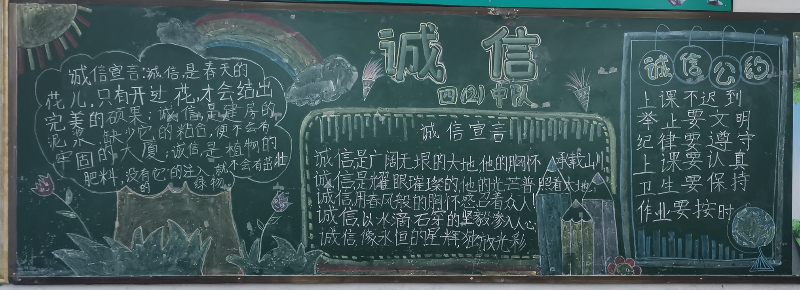 诚信
四(2)中队
诚信宣言:诚信,是春天的
花儿,只有开过花,才会结出
完美的硕果;诚信,是建房的
泥浆,缺少它的粘合,便不会有
牢固的大厦;诚信,是植物的
肥料,没有它的注入,就不会有茁壮
的绿物。
诚信宣言
诚信,是广阔无垠的大地,他的胸怀承载山川
诚信,是耀眼璀璨的,他的光芒普照着大地
诚信,用春风般的胸怀感召着众人!
诚信,以水滴石穿的坚毅渗入人心
诚信,像永恒的星辉独放光彩
诚信公约
上课不迟到
举止要文明
纪律要遵守
上课要认真
卫生要保持
作业要按时